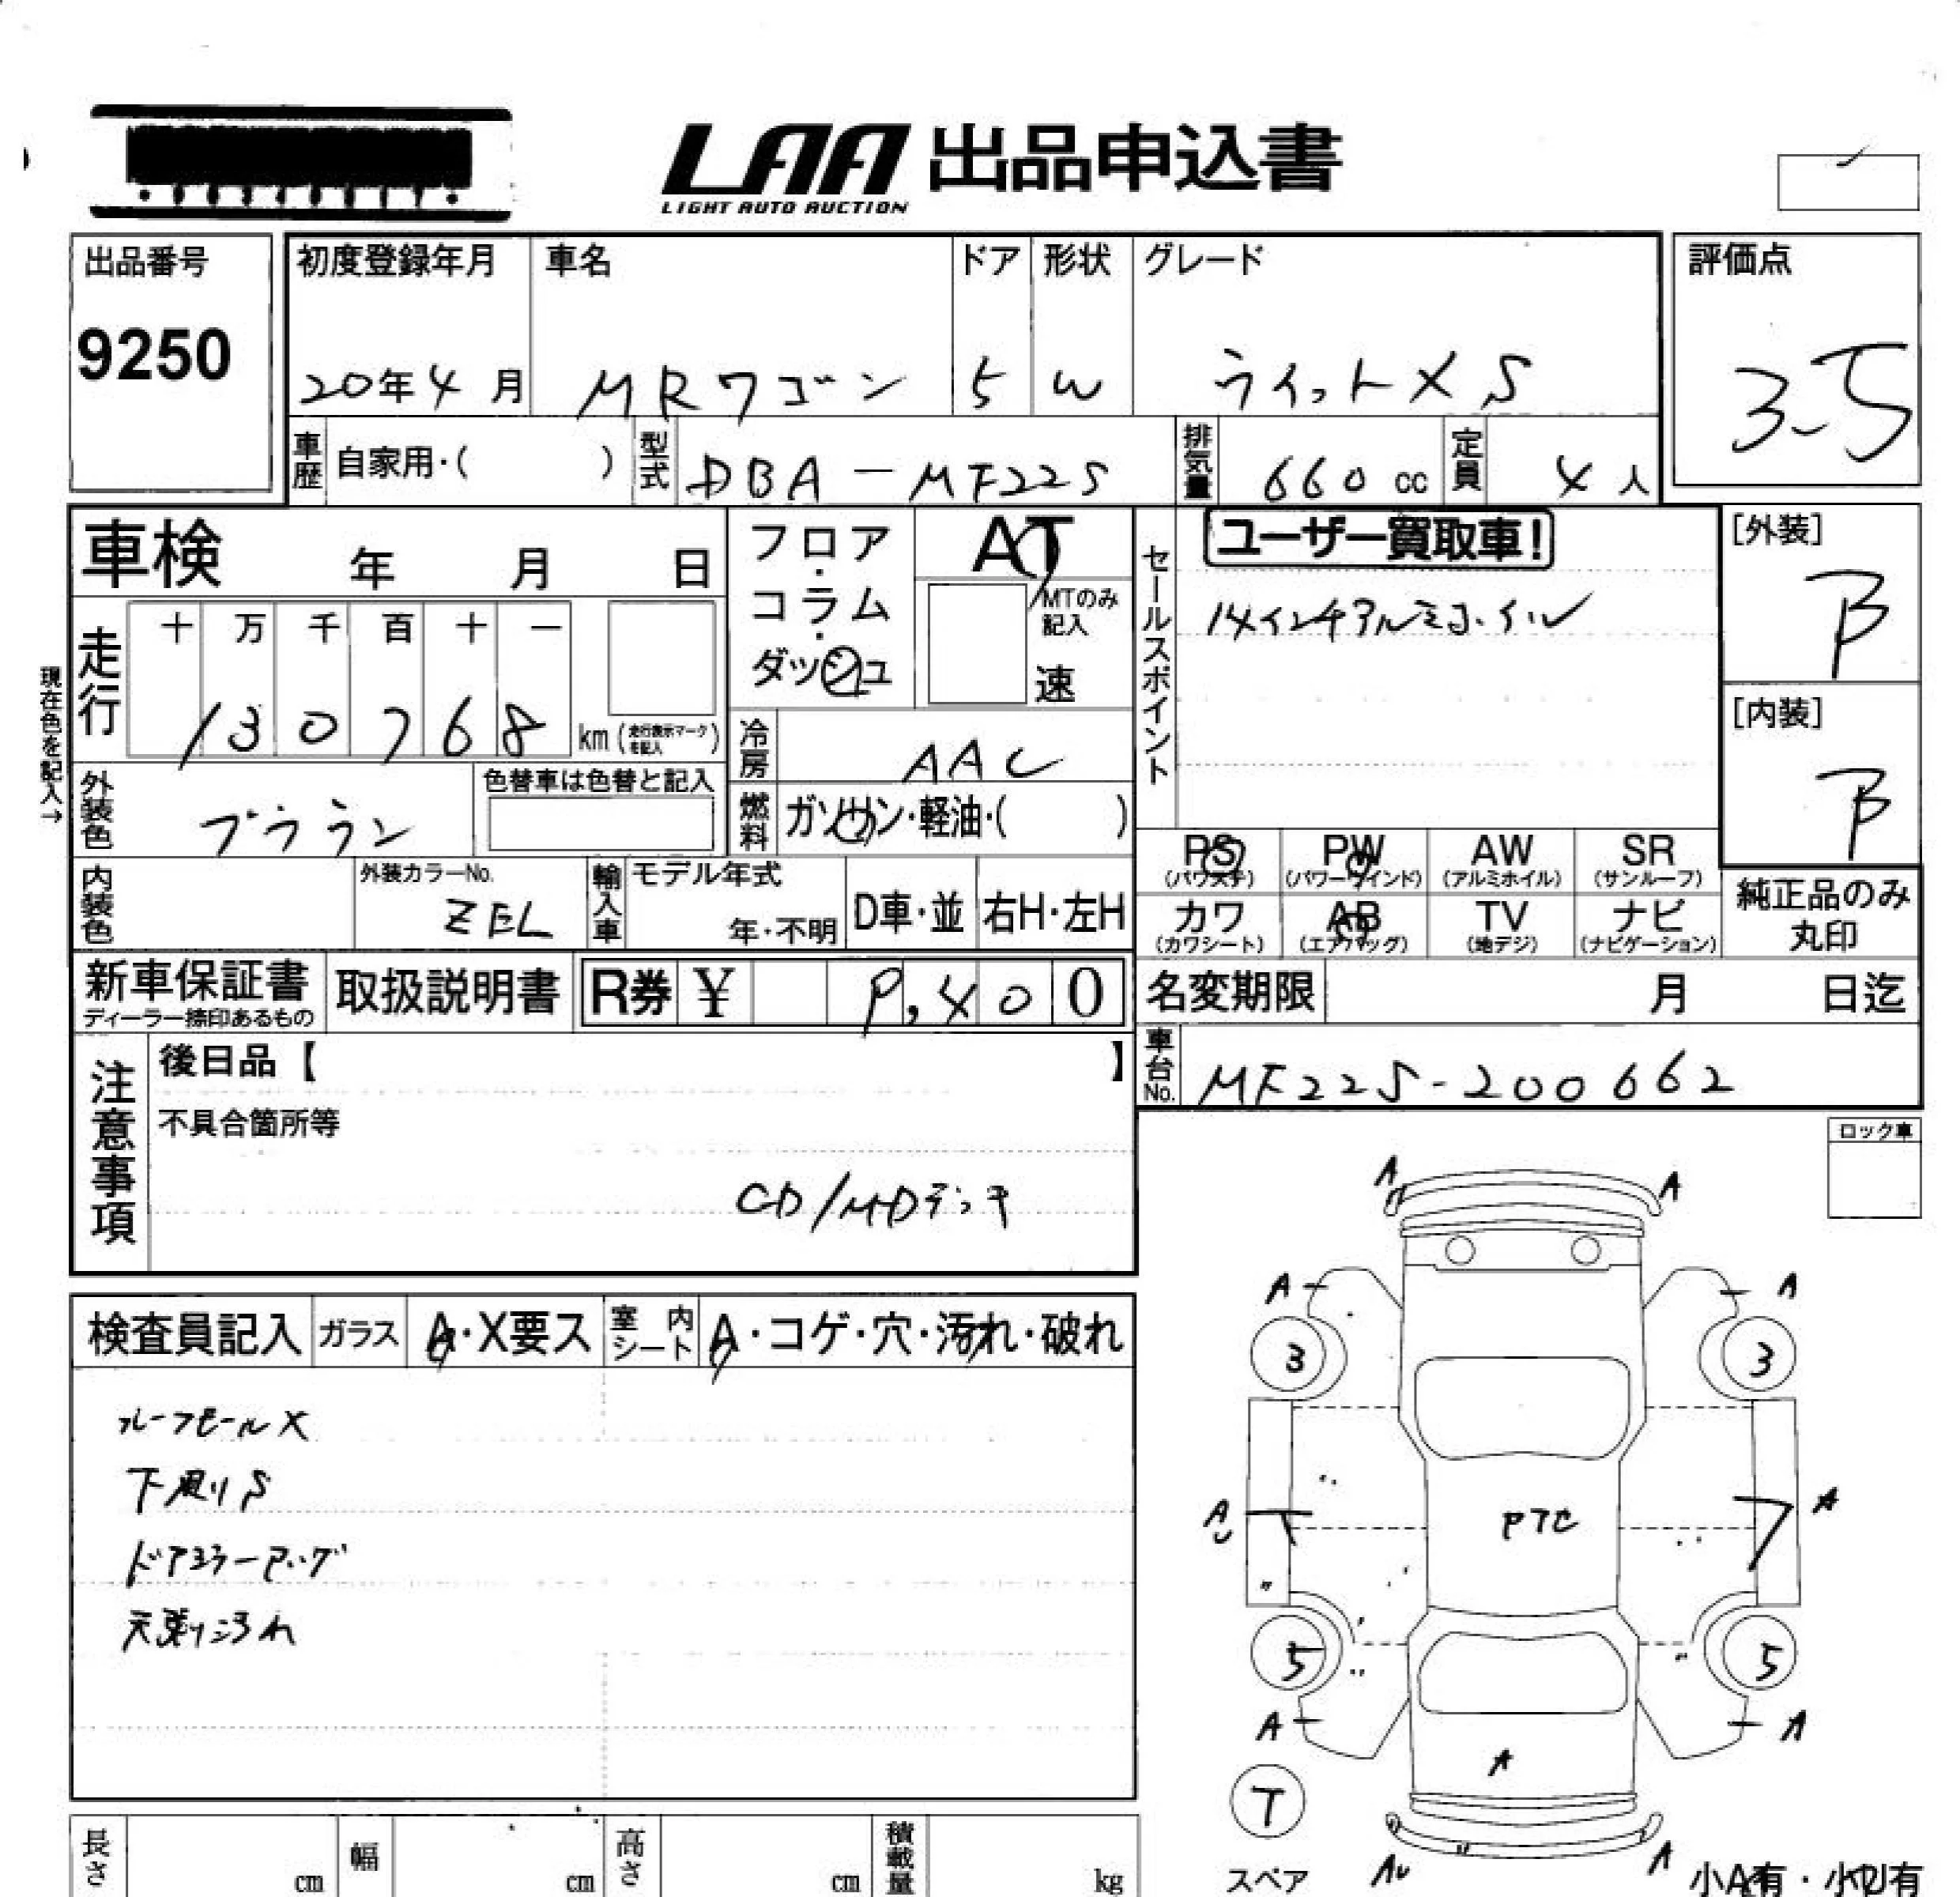 LAA 出品申込書
LIGHT AUTO AUCTION
出品番号
9250
初度登録年月 車名 ドア 形状 グレード
20年4月 MRワゴン 5 W ウィットXS
評価点
3.5
車歴 自家用・( ) 型式 DBA-MF22S 排気量 660 cc 定員 4 人
車検 年 月 日
フロア・コラム・ダッシュ
AT
MTのみ記入
速
セールスポイント
ユーザー買取車!
14インチアルミホイル
[外装]
B
[内装]
B
現在色を記入→
走行 十 万 千 百 十 一
130768 km (走行表示マークを記入)
冷房 AAC
外装色 ブラウン 色替車は色替と記入
燃料 ガソリン・軽油・( )
PS (パワステ) PW (パワーウインド) AW (アルミホイル) SR (サンルーフ)
カワ (カワシート) AB (エアバッグ) TV (地デジ) ナビ (ナビゲーション)
純正品のみ丸印
内装色 外装カラーNo. ZEL 輸入車 モデル年式 年・不明 D車・並 右H・左H
新車保証書 ディーラー捺印あるもの 取扱説明書 R券 ¥ 9,400
名変期限 月 日迄
車台No. MF22S-200662
注意事項
後日品【 】
不具合箇所等
CD/MDデッキ
ロック車
検査員記入 ガラス A・X要ス 室内シート A・コゲ・穴・汚れ・破れ
ルーフモールX
下廻りS
天張り汚れ
A A
A A
3 3
A A
PTC
5 5
A A
A
T
スペア
AU A
小A有・小U有
長さ cm 幅 cm 高さ cm 積載量 kg